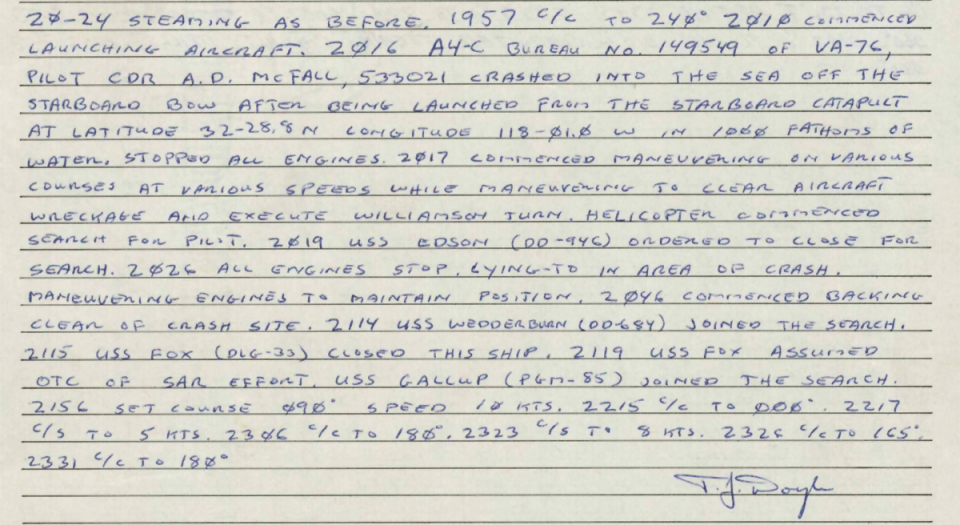 2Ø-24 STEAMING AS BEFORE. 1957 C/C TO 24Ø° 2Ø1Ø COMMENCED
LAUNCHING AIRCRAFT. 2Ø16 A4-C BUREAU NO. 149549 OF VA-76,
PILOT CDR A.D. McFALL, 533021 CRASHED INTO THE SEA OFF THE
STARBOARD BOW AFTER BEING LAUNCHED FROM THE STARBOARD CATAPULT
AT LATITUDE 32-28.8 N LONGITUDE 118-Ø1.Ø W IN 1ØØØ FATHOMS OF
WATER. STOPPED ALL ENGINES. 2Ø17 COMMENCED MANEUVERING ON VARIOUS
COURSES AT VARIOUS SPEEDS WHILE MANEUVERING TO CLEAR AIRCRAFT
WRECKAGE AND EXECUTE WILLIAMSON TURN. HELICOPTER COMMENCED
SEARCH FOR PILOT. 2Ø19 USS EDSON (DD-946) ORDERED TO CLOSE FOR
SEARCH. 2Ø26 ALL ENGINES STOP. LYING-TO IN AREA OF CRASH.
MANEUVERING ENGINES TO MAINTAIN POSITION. 2Ø46 COMMENCED BACKING
CLEAR OF CRASH SITE. 2114 USS WEDDERBURN (DD-684) JOINED THE SEARCH.
2115 USS FOX (DLG-33) CLOSED THIS SHIP. 2119 USS FOX ASSUMED
OTC OF SAR EFFORT. USS GALLUP (PGM-85) JOINED THE SEARCH.
2156 SET COURSE Ø9Ø° SPEED 1Ø KTS. 2215 C/C TO ØØØ°. 2217
C/S TO 5 KTS. 23Ø6 C/C TO 18Ø°. 2323 C/S TO 8 KTS. 2326 C/C TO 165°.
2331 C/C TO 18Ø°
T.J. Doyle